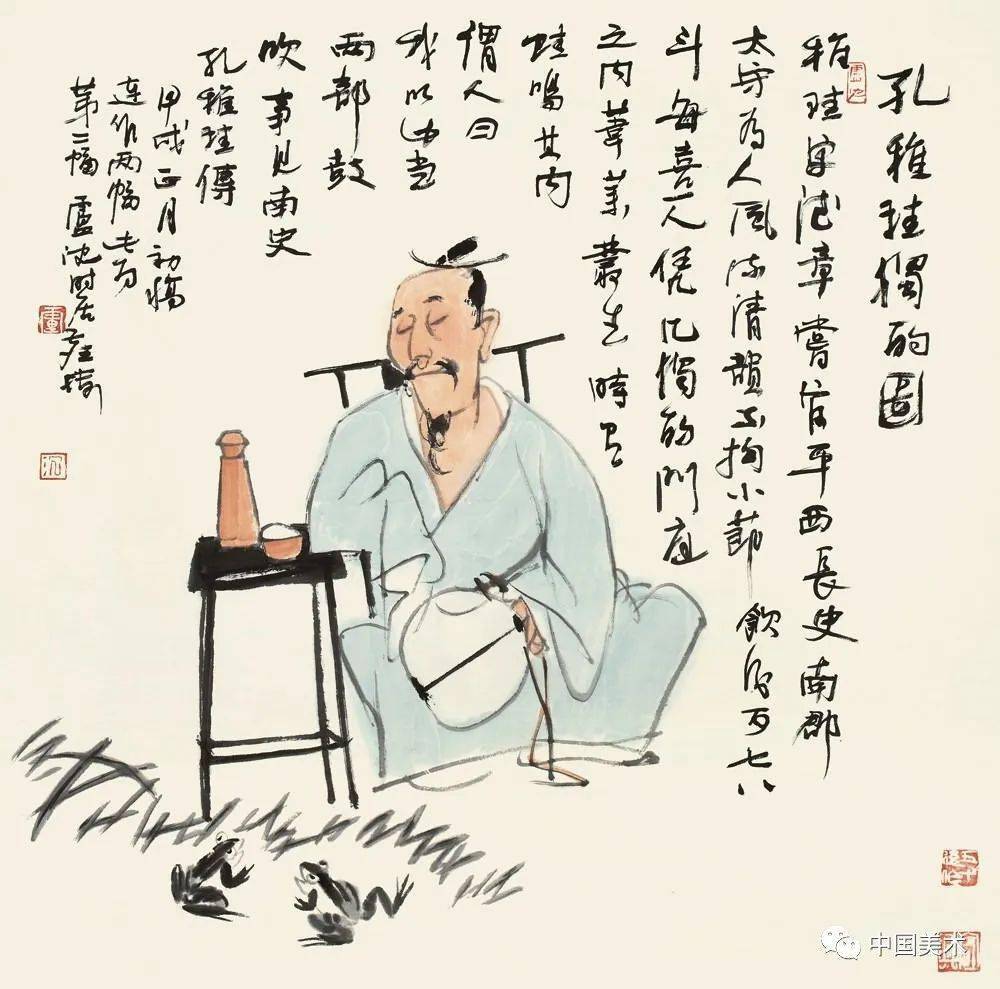 孔稚珪獨酌圖
稚珪字德章嘗官平西長史南郡
太守为人風流清韻不拘小節飲酒可七八
斗每喜一人凭几獨酌門庭
之内叢生時有
蛙鳴其内
謂人曰
我以此當
两部鼓
吹事見南史
孔稚珪傳
甲戌正月初
連作两幅此为
第二幅盧沉时居
中国美术